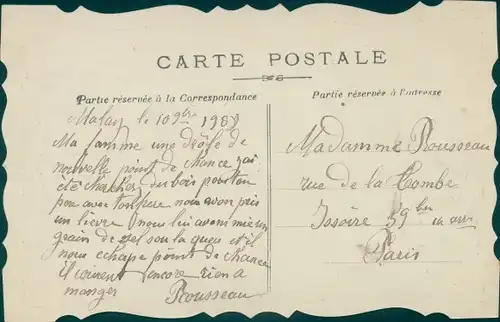 CARTE POSTALE
Partie réservée à la Correspondance
Partie réservée à l'adresse
Malay le 10 9bre 1908
Ma famme une drôle de
nouvelle point de chance jai
été chercher du bois pour ton
peu avec nous avon pris
un lievre nous lui avons mie un
grain de sel sou la queu et il
nous echape point de chance
il courent encore rien a
manger Rousseau
Madamme Rousseau
rue de la Combe
Issoire 59 bis
Paris